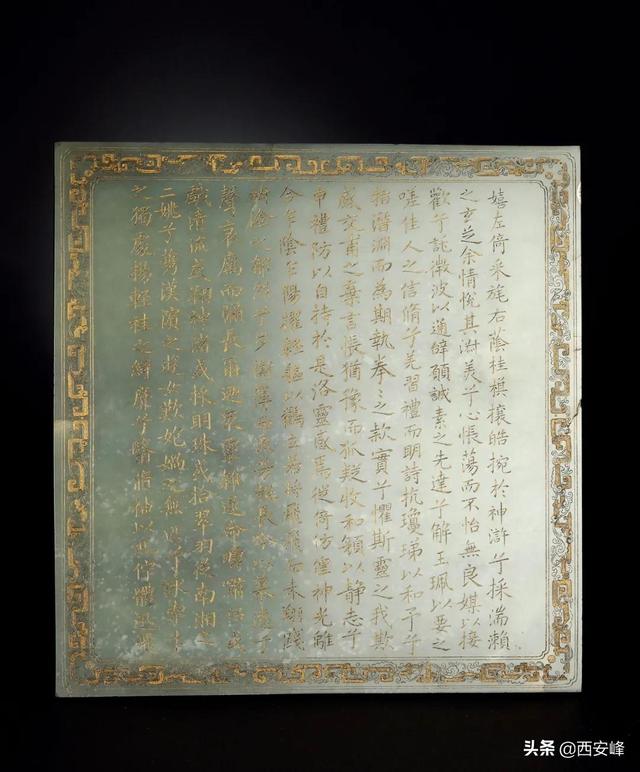 嬉左倚采旄右蔭桂旗攘皓捥於神滸兮採湍瀨
之玄芝余情悅其淑美兮心悵蕩而不怡無良媒以接
歡兮託微波以通辭願誠素之先達兮解玉珮以要之
嗟佳人之信脩兮羌習禮而明詩抗瓊珶以和予兮
指潛淵而為期執拳〻之款實兮懼斯靈之我欺
感交甫之棄言悵猶豫而狐疑收和顏以静志兮
申禮防以自持於是洛靈感焉徙倚仿偟神光離
合乍陰乍陽擢輕軀以鶴立若將飛而未翔踐
之郁烈兮步蘅薄而流芳超長吟以慕遠兮
聲哀厲而彌長爾迺衆靈雜遝命疇嘯侶或
戲清流或翔神渚或採明珠或拾翠羽從南湘之
二姚兮攜漢濱之游女歎匏媧之無匹兮詠牽牛
之獨處揚輕袿之綺靡兮翳脩袖以延佇體迅飛
头条@西安峰